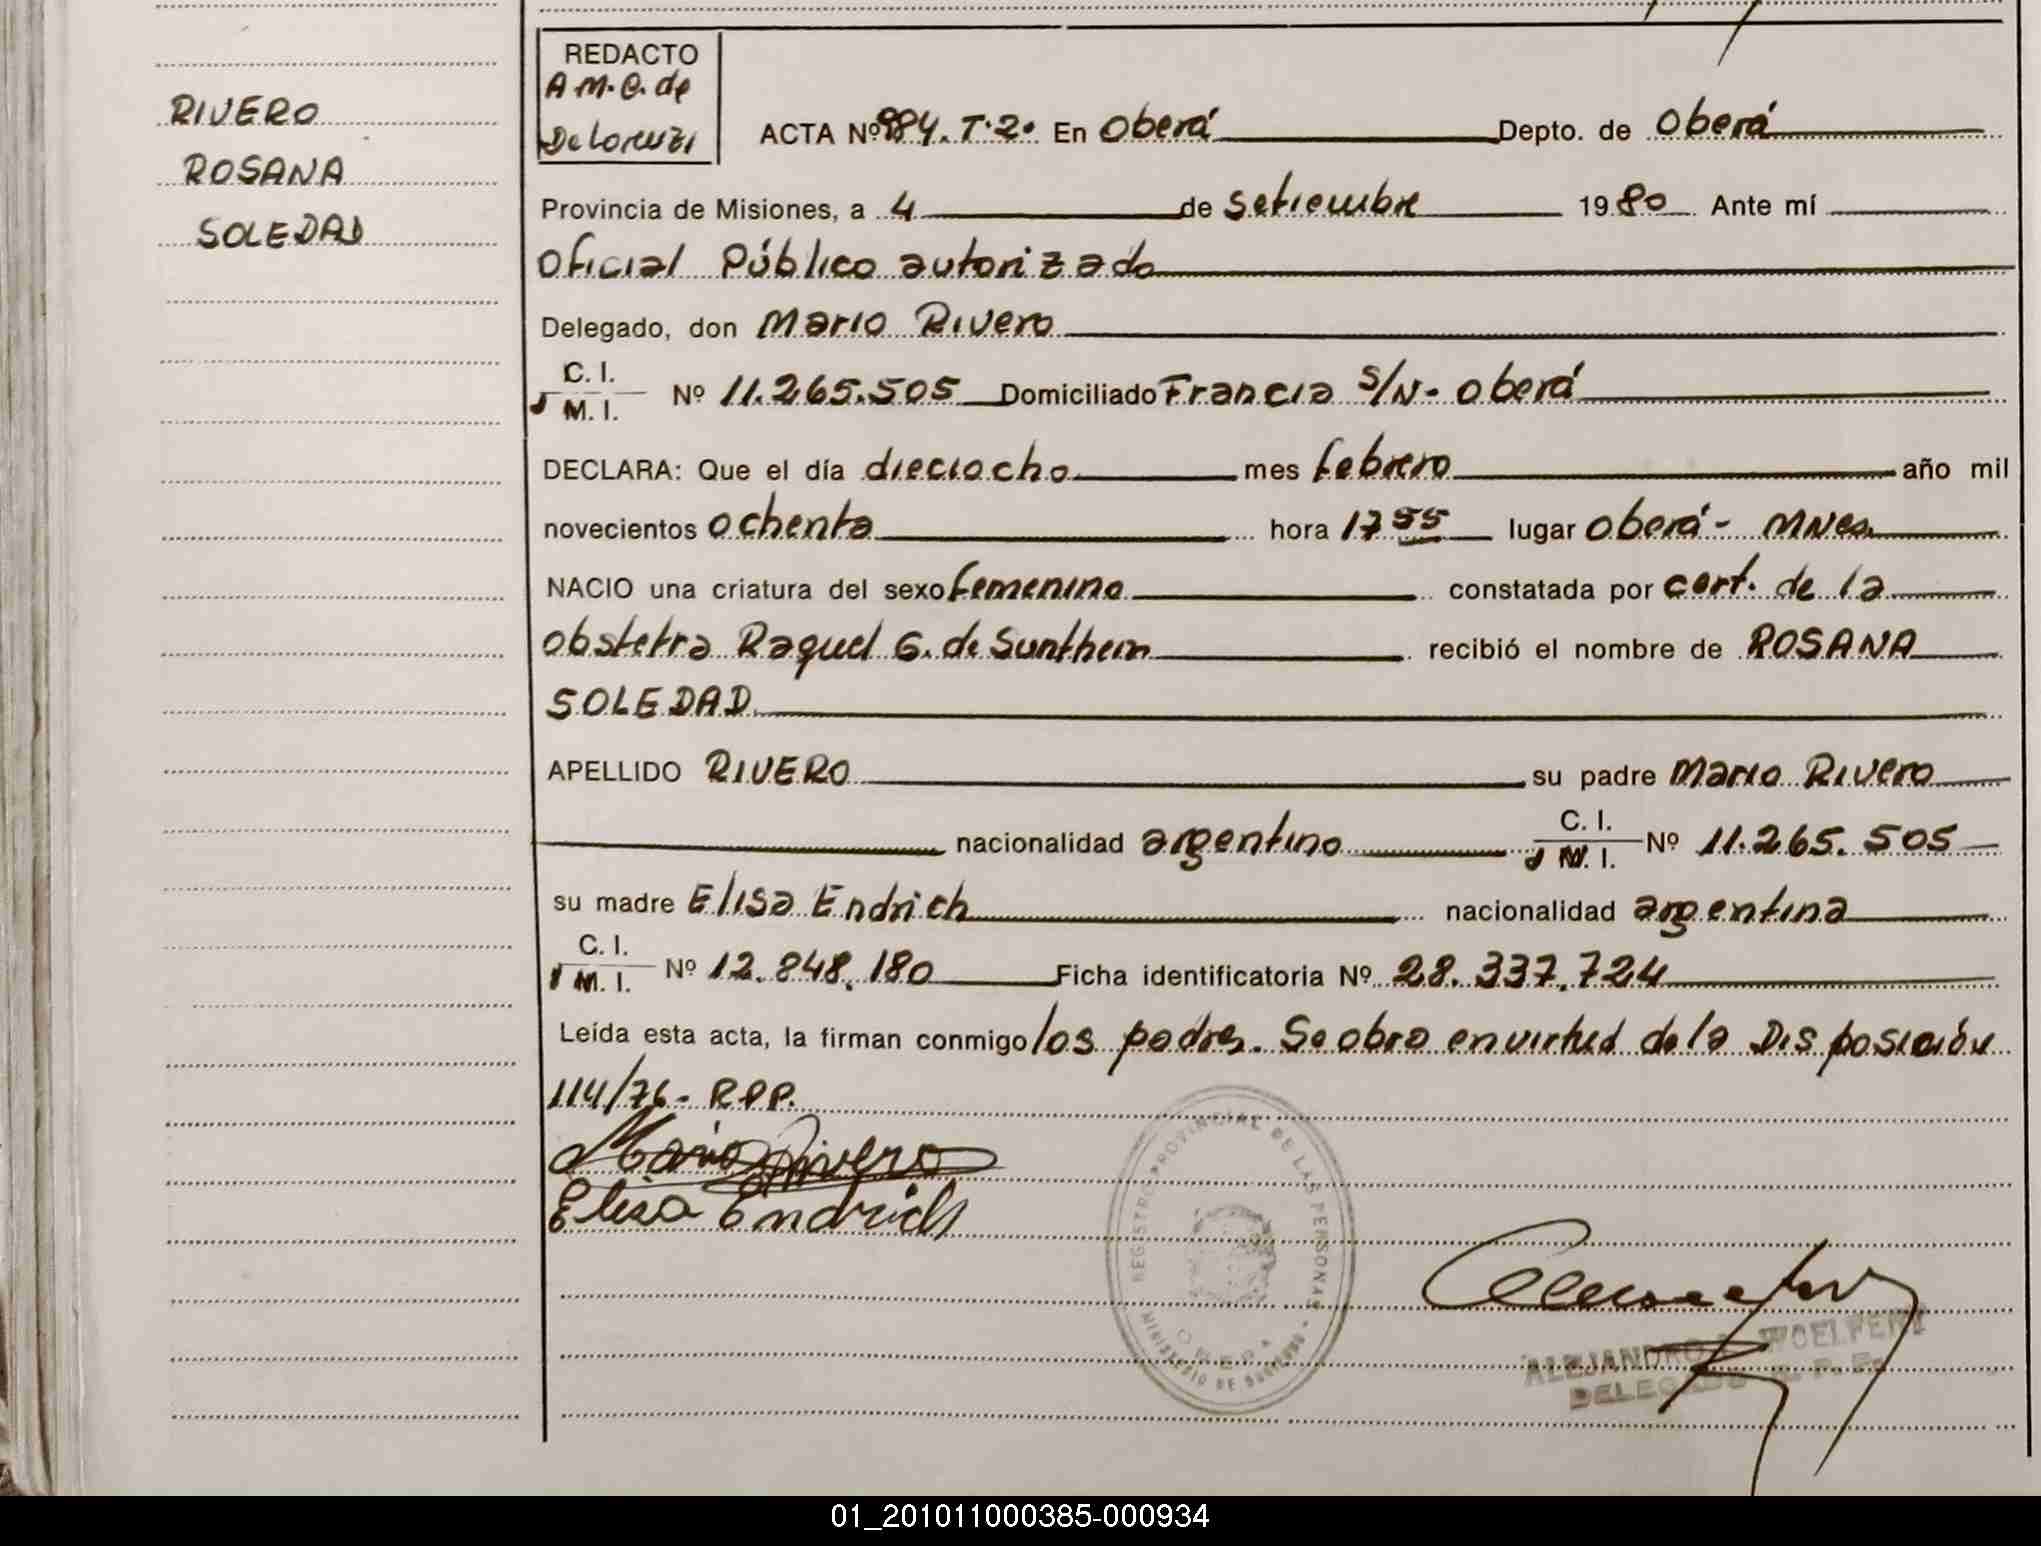 RIVERO
ROSANA
SOLEDAD
REDACTO
A.M.C. de
De Lorenzi
ACTA Nº 984. T.2º En Oberá Depto. de Oberá
Provincia de Misiones, a 4 de setiembre 1980 Ante mí
Oficial Público autorizado
Delegado, don Mario Rivero
C. I.
M. I. Nº 11.265.505 Domiciliado Francia S/N- Oberá
DECLARA: Que el día dieciocho mes febrero año mil
novecientos ochenta hora 17 55 lugar Oberá- Mnes.
NACIO una criatura del sexo femenino constatada por cert. de la
obstetra Raquel G. de recibió el nombre de ROSANA
SOLEDAD
APELLIDO RIVERO su padre Mario Rivero
nacionalidad argentino C. I.
M. I. Nº 11.265.505
su madre Elisa Endrich nacionalidad argentina
C. I.
M. I. Nº 12.848.180 Ficha identificatoria Nº 28.337.724
Leída esta acta, la firman conmigo los padres. Se obra en virtud de la Disposición
114/76- RPP.
Mario Rivero
Elisa Endrich
REGISTRO PROVINCIAL DE LAS PERSONAS
MINISTERIO DE GOBIERNO
OBERA
ALEJANDRO
DELEGADO
01_201011000385-000934